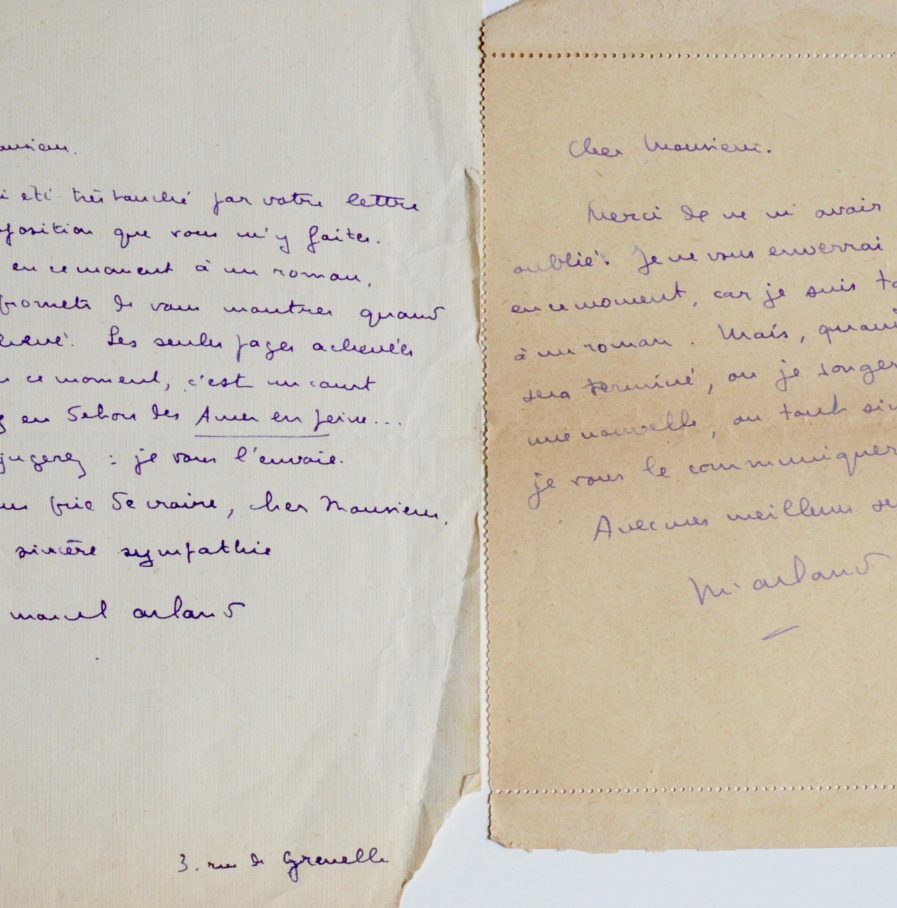 onsieur.
i été très touché par votre lettre
position que vous m'y faites.
en ce moment à un roman,
promets de vous montrer quand
hevé. Les seules pages achevées
ce moment, c'est un court
en dehors des Ames en peine...
jugerez : je vous l'envoie.
us prie de croire, cher Monsieur,
sincère sympathie
marcel arland
3. rue de Grenelle
Cher Monsieur.
Merci de ne m'avoir
oublié. Je ne vous enverrai
en ce moment, car je suis to
à un roman. Mais, quand
sera terminé, ou je songer
une nouvelle, ou tout sim
je vous le communiquer
Avec mes meilleurs se
M. arland